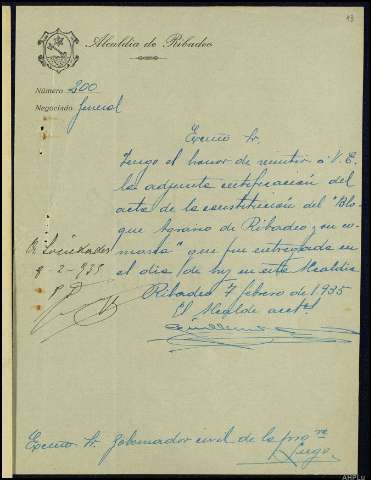 13
Alcaldía de Ribadeo
Número 200
Negociado General
Excmo Sr.
Tengo el honor de remitir a V. E.
la adjunta certificación del
acta de la constitución del "Blo
que Agrario de Ribadeo y su co
marca" que fue entregada en
el día de hoy en esta Alcaldía
Ribadeo 7 febrero de 1935
El Alcalde acctl.
Guillermo
A Sociedades
9-2-935
Excmo Sr. Gobernador civil de la provª
Lugo.
AHPLu